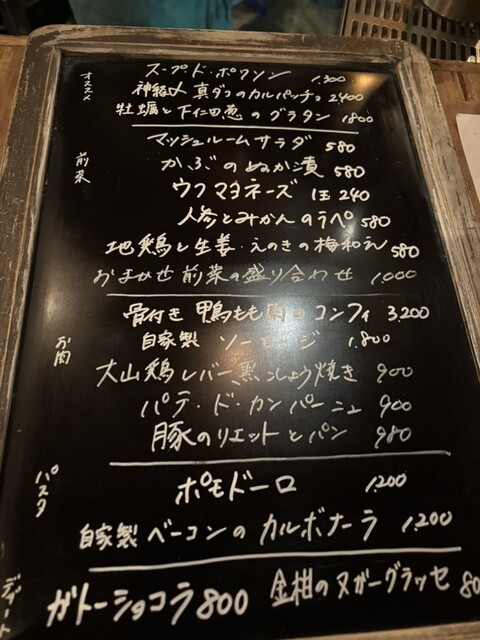 オススメ
スープ・ド・ポワソン 1,300
神経〆 真ダコのカルパッチョ 2400
牡蠣と下仁田葱のグラタン 1800
前菜
マッシュルームサラダ 580
かぶのぬか漬 580
ウフマヨネーズ 1玉 240
人参とみかんのラペ 580
地鶏と生姜・えのきの梅和え 580
おまかせ前菜の盛り合わせ 1,000
お肉
骨付き 鴨もも肉のコンフィ 3,200
自家製 ソーセージ 1,800
大山鶏レバー、黒こしょう焼き 900
パテ・ド・カンパーニュ 900
豚のリエットとパン 980
パスタ
ポモドーロ 1,200
自家製ベーコンのカルボナーラ 1,200
ガトーショコラ 800 金柑のヌガーグラッセ